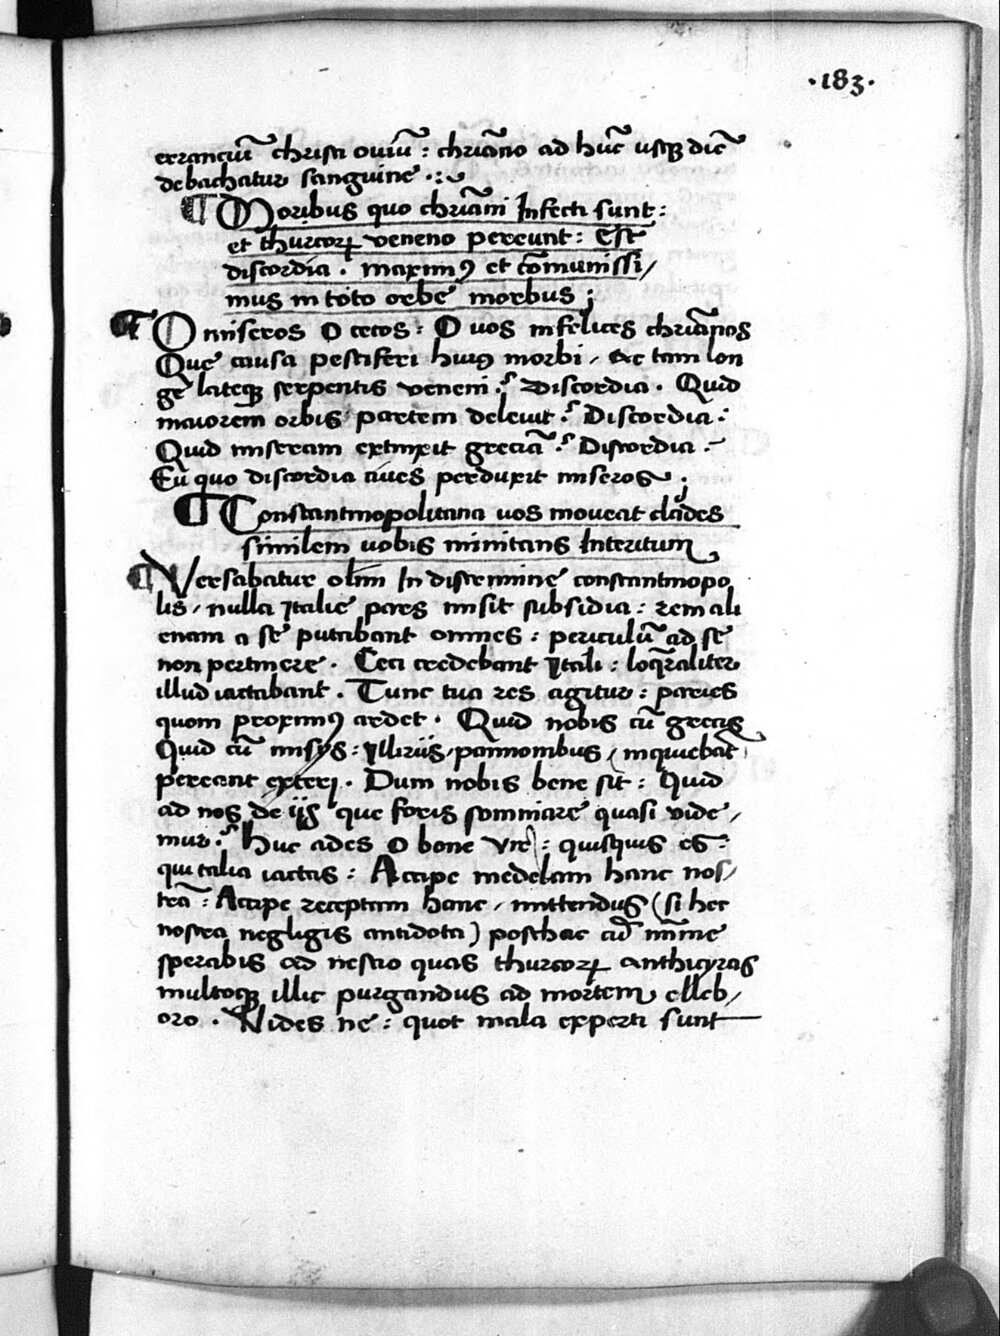 ·183·
errantiū christi oviū : chriāno ad hūc usq̨ diē
debachatur sanguine .:~
¶ Moribus quo chriāni Infecti sunt :
et thurcoꝝ veneno pereunt : Est
discordia . maximꝯ et cōmunissi/
mus in toto orbe morbus ;
¶ O miseros O cecos : O uos infelices chriānos
Que causa pestiferi huiꝯ morbi / ac tam lon
ge lateq̨ serpentis veneni ? Discordia . Quid
maiorem orbis partem delevit ? Discordia :
Quid miseram extinxit greciā ? Discordia .
Eū quo discordia cives perduxit miseros ;
¶ Constantinopolitana uos moueat clades
similem uobis minitans Interitum
¶ Versabatur olim In discrimine constantinopo
lis / nulla Italie pars misit subsidia : rem ali
enam a se putabant omnes : periculū ad se
non pertinere . Ceci credebant Itali : loqraliter
illud iactabant . Tunc tua res agitur : paries
quom proximꝯ ardet . Quid nobis cū grecis
Quid cū misijs : Illiriis / pannonibus ( inquiebāt
pereant exteri . Dum nobis bene sit : Quid
ad nos de iis que foris somniare quasi vide /
mur . Huc ades O bone Vir : quisquis es :
qui talia iactas : Accipe medelam hanc nos/
trā : Accipe receptam hanc / mittendus ( si hec
nostra negligis antidota ) posthac cū minime
sperabis ad nescio quas thurcoꝝ anthicyras
multoq̨ illic purgandus ad mortem elleb/
oro . Vides ne : quot mala experti sunt